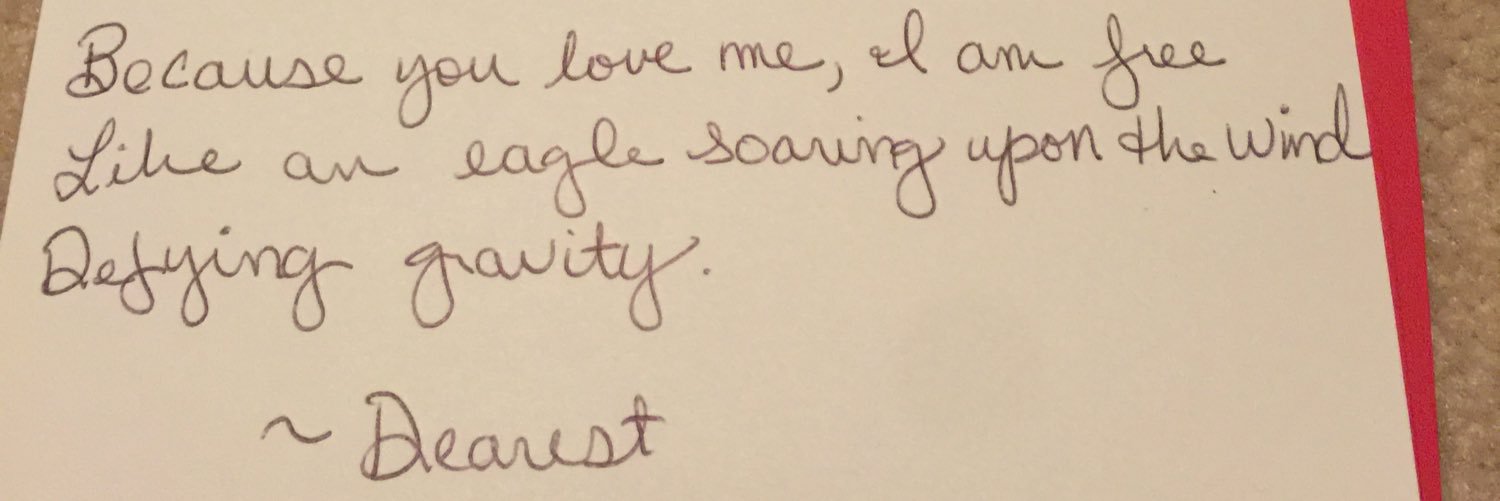 Because you love me, I am free
Like an eagle soaring upon the Wind
Defying gravity.
~ Dearest